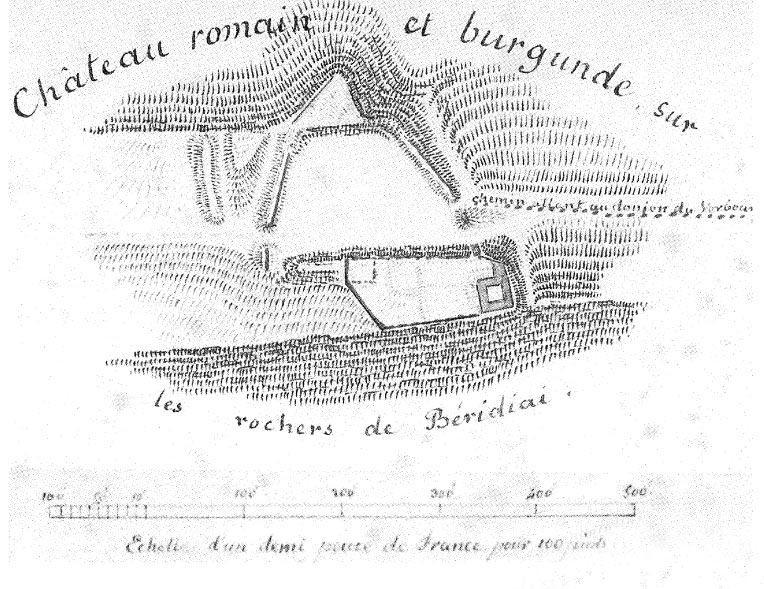 Château romain et burgunde, sur
chemin allant au donjon du
les rochers de Béridiai.
100' 0' 10' 100' 200' 300' 400' 500'
Echelle d'un demi pouce de France pour 100 pieds